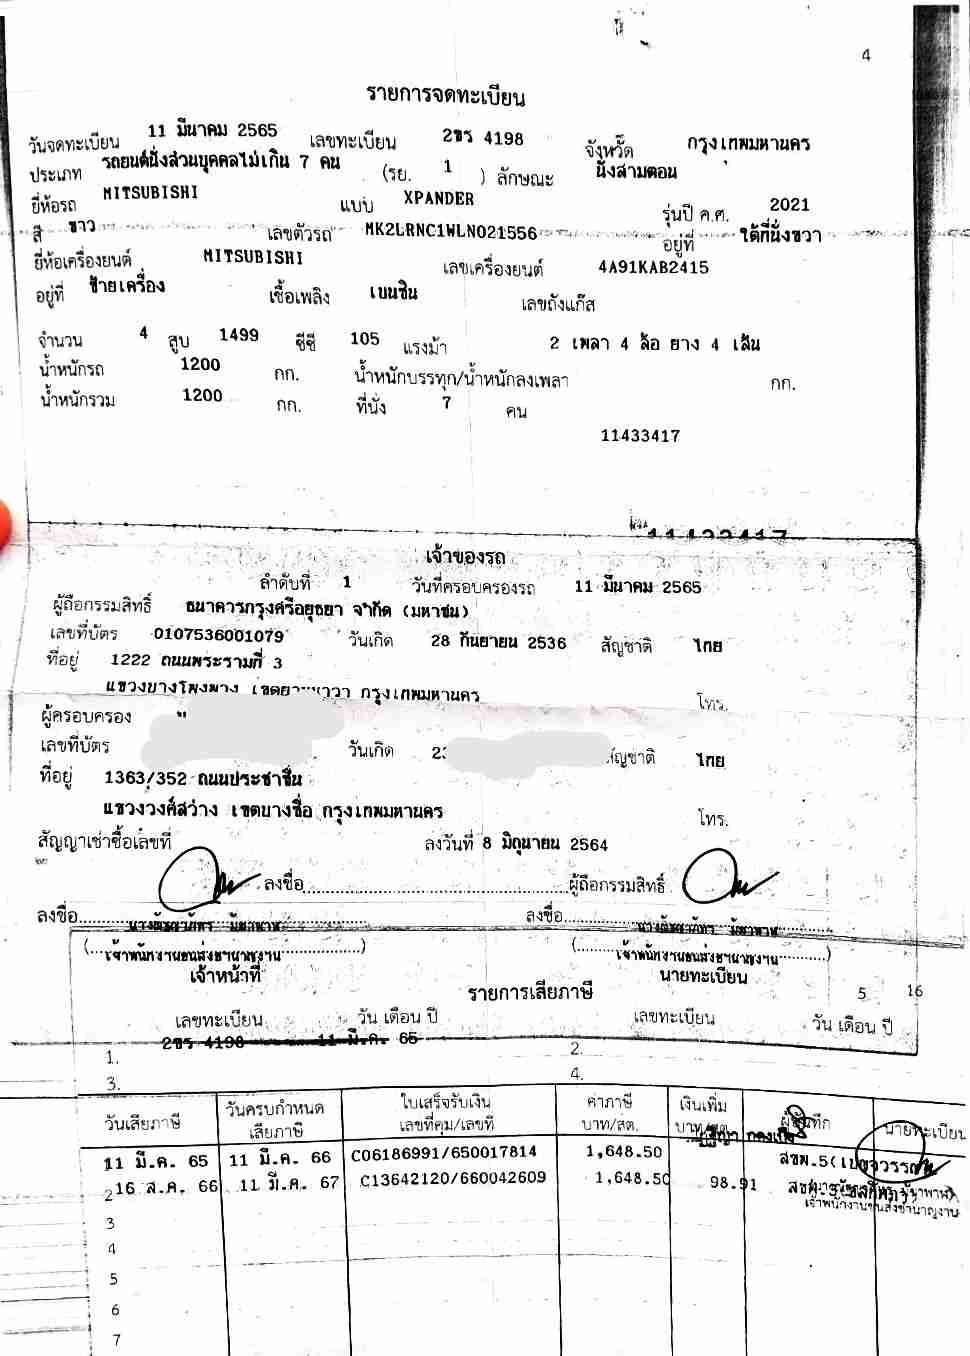 4
รายการจดทะเบียน
วันจดทะเบียน 11 มีนาคม 2565 เลขทะเบียน 2ขร 4198 จังหวัด กรุงเทพมหานคร
ประเภท รถยนต์นั่งส่วนบุคคลไม่เกิน 7 คน (รย. 1 ) ลักษณะ นั่งสามตอน
ยี่ห้อรถ MITSUBISHI แบบ XPANDER รุ่นปี ค.ศ. 2021
สี ขาว เลขตัวรถ MK2LRNC1WLN021556 อยู่ที่ ใต้ที่นั่งขวา
ยี่ห้อเครื่องยนต์ MITSUBISHI เลขเครื่องยนต์ 4A91KAB2415
อยู่ที่ ซ้ายเครื่อง เชื้อเพลิง เบนซิน เลขถังแก๊ส
จำนวน 4 สูบ 1499 ซีซี 105 แรงม้า 2 เพลา 4 ล้อ ยาง 4 เส้น
น้ำหนักรถ 1200 กก. น้ำหนักบรรทุก/น้ำหนักลงเพลา กก.
น้ำหนักรวม 1200 กก. ที่นั่ง 7 คน
11433417
11433417
เจ้าของรถ
ลำดับที่ 1 วันที่ครอบครองรถ 11 มีนาคม 2565
ผู้ถือกรรมสิทธิ์ ธนาคารกรุงศรีอยุธยา จำกัด (มหาชน)
เลขที่บัตร 0107536001079 วันเกิด 28 กันยายน 2536 สัญชาติ ไทย
ที่อยู่ 1222 ถนนพระรามที่ 3
แขวงบางโพงพาง เขตยานนาวา กรุงเทพมหานคร โทร.
ผู้ครอบครอง
เลขที่บัตร วันเกิด 23 สัญชาติ ไทย
ที่อยู่ 1363/352 ถนนประชาชื่น
แขวงวงศ์สว่าง เขตบางซื่อ กรุงเทพมหานคร โทร.
สัญญาเช่าซื้อเลขที่ ลงวันที่ 8 มิถุนายน 2564
ลงชื่อ ผู้ถือกรรมสิทธิ์
ลงชื่อ ลงชื่อ
(เจ้าพนักงานขนส่งชำนาญงาน) (เจ้าพนักงานขนส่งชำนาญงาน)
เจ้าหน้าที่ นายทะเบียน
รายการเสียภาษี 5 16
เลขทะเบียน วัน เดือน ปี เลขทะเบียน วัน เดือน ปี
1. 2ขร 4198 11 มี.ค. 65 2.
3. 4.
วันเสียภาษี วันครบกำหนดเสียภาษี ใบเสร็จรับเงิน เลขที่คุม/เลขที่ ค่าภาษี บาท/สต. เงินเพิ่ม บาท/สต. ผู้บันทึก นายทะเบียน
11 มี.ค. 65 11 มี.ค. 66 C06186991/650017814 1,648.50 สขพ.5
2 16 ส.ค. 66 11 มี.ค. 67 C13642120/660042609 1,648.50 98.91
เจ้าพนักงานขนส่งชำนาญงาน
3
4
5
6
7